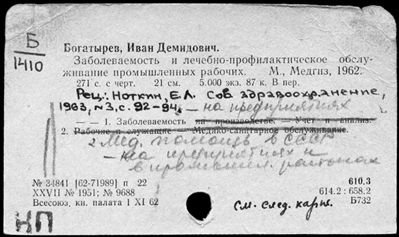 Б
1410
Богатырев, Иван Демидович.
Заболеваемость и лечебно-профилактическое обслу-
живание промышленных рабочих. М., Медгиз, 1962.
271 с. с черт. 21 см. 5.000 экз. 87 к. В пер.
Рец.: Ноткин, Е.Л. Сов. здравоохранение,
1963, №3, с. 92-94. — на предприятиях
— 1. Заболеваемость на производстве. — Учет и анализ.
2. Рабочие и служащие — Медико-санитарное обслуживание.
2 Мед. помощь в СССР
— на предприятиях и
в промышл. районах
№ 34841 [62-71989] п 22
XXVII № 1951; № 9688
Всесоюз. кн. палата 1 XI 62
610.3
614.2 : 658.2
Б732
НП
см. след. карт.